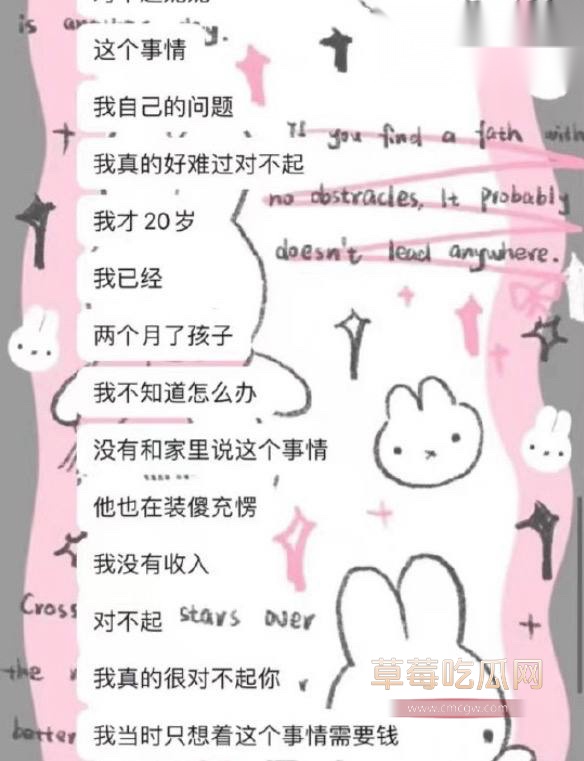 is another day.
这个事情
我自己的问题
If you find a fath with
我真的好难过对不起
no obstracles, It probably
我才20岁
doesn't lead anywhere.
我已经
两个月了孩子
我不知道怎么办
没有和家里说这个事情
他也在装傻充愣
我没有收入
Cross
对不起
stars over
the
我真的很对不起你
草莓吃瓜网
www.cmcgw.com
better
我当时只想着这个事情需要钱